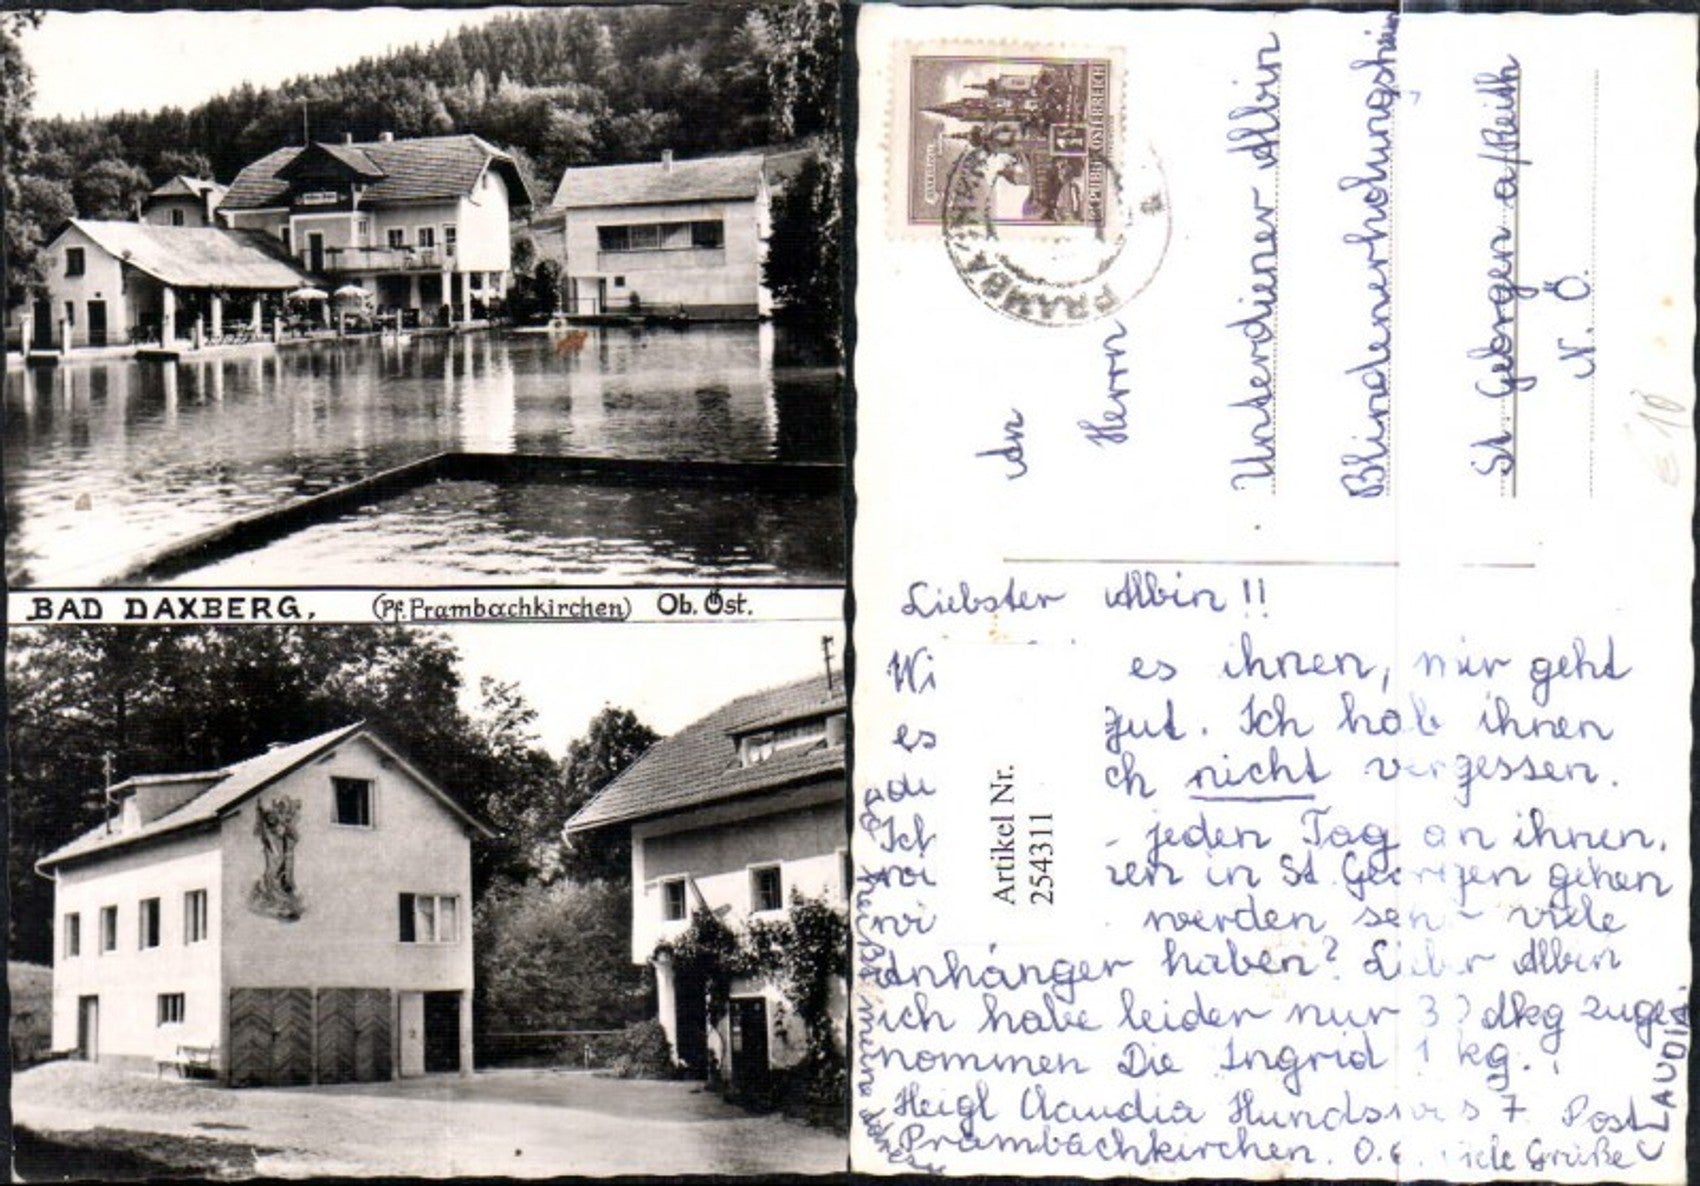 BAD DAXBERG, (Pf. Prambachkirchen) Ob. Öst.
REPUBLIK ÖSTERREICH
PRAMBA
An
Herrn
Unterdiener Albin
Blindenerholungsheim
St. Georgen a/Reith
N. Ö.
€ 10
Liebster Albin!!
Wi es ihnen, mir geht
es gut. Ich hab ihnen
ch nicht vergessen.
Ich jeden Tag an ihnen.
wi ren in St. Georgen gehen
wi werden sehr viele
Anhänger haben? Lieber Albin
ich habe leider nur dkg zuge-
nommen Die Ingrid 1 kg.
Heigl Claudia 7 Post
Prambachkirchen. O.Ö. viele Grüße
CLAUDIA
heißt meine
Artikel Nr.
2554311